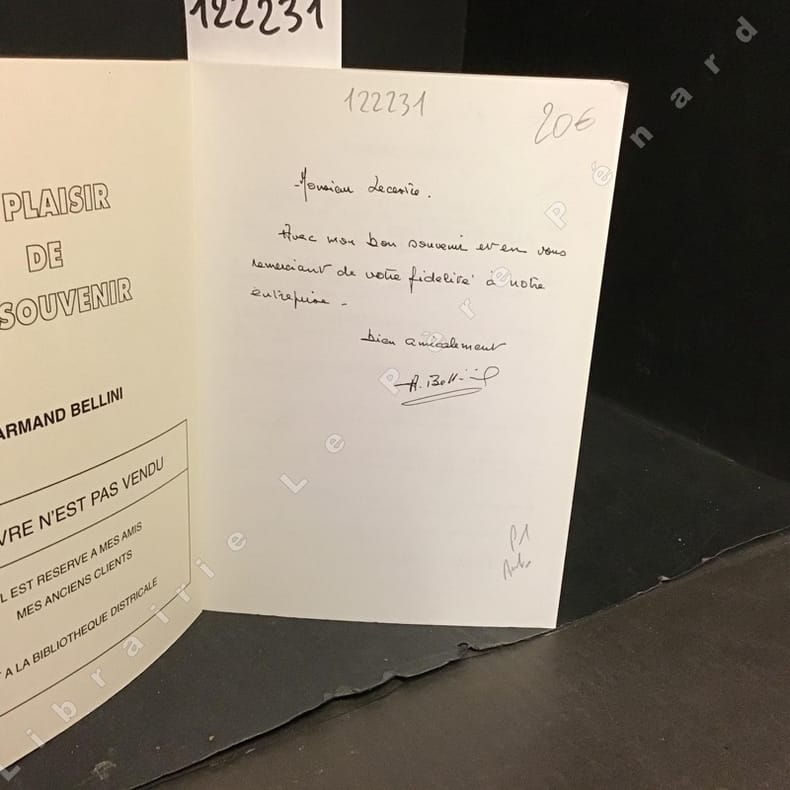 122231
PLAISIR
DE
SOUVENIR
ARMAND BELLINI
VRE N'EST PAS VENDU
L EST RESERVE A MES AMIS
MES ANCIENS CLIENTS
T A LA BIBLIOTHEQUE DISTRICALE
122231
20€
Monsieur
Avec mon bon souvenir et en vous
remerciant de votre fidelité à notre
entreprise -
bien amicalement
A. Bellini
P1
Librairie Le Père Pénard